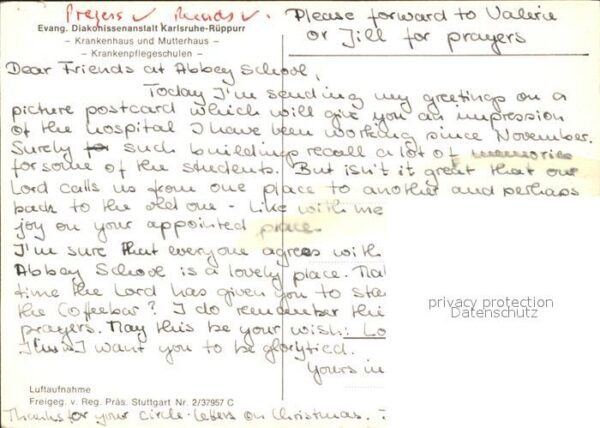 Prayers ✓ Friends ✓
Please forward to Valerie
or Jill for prayers
Evang. Diakonissenanstalt Karlsruhe-Rüppurr
– Krankenhaus und Mutterhaus –
– Krankenpflegeschulen –
Dear Friends at Abbey School,
Today I'm sending my greetings on a
picture postcard which will give you an impression
of the hospital I have been working since November.
Surely for such buildings recall a lot of memories
for some of the students. But isn't it great that our
Lord calls us from one place to another and perhaps
back to the old one – like with me
joy on your appointed place.
I'm sure that everyone agrees with
Abbey School is a lovely place.
time the Lord has given you to
the Coffeebar? I do remember
prayers. May this be your wish:
I want you to be glorified.
Yours in
privacy protection
Datenschutz
Luftaufnahme
Freigeg. v. Reg. Präs. Stuttgart Nr. 2/37957 C
Thanks for your circle-letters on Christmas.